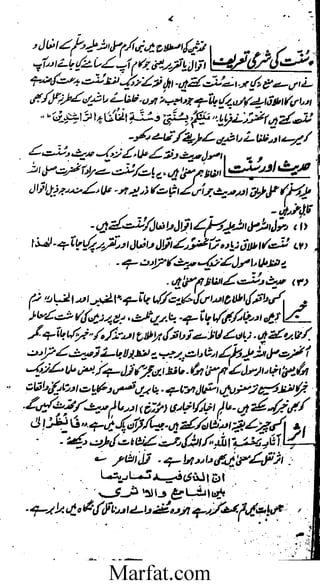 ۷
سنت کی شرعی تعریف
محدثین کی اصطلاح میں نبی اکرم صلی اللہ علیہ وسلم کے افعال و
اقوال یا تقریر یعنی جو کام آپ کے سامنے کیا جائے اور آپ
نے اس سے منع نہ کیا ہو۔ اسے سنت کہتے ہیں۔ اہل فقہ کے نزدیک لفظ سنت بدعت کی ضد ہے
اور اس کا اطلاق ایسے کاموں پر کیا جاتا ہے جو واجب نہ ہوں۔ خلفائے راشدین کے طرز عمل کو بھی
سنت کہتے ہیں آنحضور نے فرمایا۔ عَلَيْكُمْ بِسُنَّتِي وَسُنَّةِ الْخُلَفَاءِ الرَّاشِدِينَ
کو میرے اور خلفائے راشدین کے طریقے کو تھامے رکھو۔
حدیث اور سنت
اصول حدیث و فقہ کے علماء کے نزدیک حدیث و سنت کے
الفاظ ہم معنی ہیں۔ سنت سے مراد آنحضرت صلی اللہ
علیہ وسلم کا عملی طریق اور حدیث اس کے اثبات کا ذریعہ ہو۔ علماء کے مندرجہ ذیل اقوال
قابل غور ہیں۔
(۱) رسول اللہ صلی اللہ علیہ وسلم کے اقوال و افعال کو سنت کہتے ہیں۔
(۲) سنت کا اطلاق زیادہ تر آنحضور کے اقوال و افعال اور تقریر پر کیا جاتا ہے۔ لہٰذا
یہ لفظ علماء اصول کے نزدیک حدیث کا مترادف ہے۔
(۳) حدیث و سنت کے الفاظ ہم معنی ہیں۔
خبر
کسی واقعہ کی اطلاع اور اس کی حکایت کو کہا جاتا ہے
زمین اور غبار کو بھی کہا جاتا ہے۔ بنا بریں ثلث، ربع پر زمین کی کاشت کے معاملہ
کو مخابرہ کہتے ہیں۔ زبان کے لحاظ سے تو واقعہ کی ہر اطلاع اور تذکرہ کو خبر کہا جاتا ہے مگر
آنحضرت صلی اللہ علیہ وسلم کے ارشادات پر جب یہ لفظ بولا جائے تو حدیث کے مترادف
ہوگا یعنی اخبار الرسول کے ہم معنی ہوگا۔ حافظ ابن حجر کا قول ہے کہ بعض علماء کے نزدیک
خبر کا لفظ وسیع تر معنوں میں استعمال ہوتا ہے۔ بنا بریں قصص و حکایات اور تاریخی واقعات
کو بھی خبر کہہ سکتے ہیں۔ عالم اخبار کو اخباری (مورخ) اور عالم حدیث کو محدث کہیں گے۔
اثر
کسی چیز کے بقیہ اور نشان کو کہتے ہیں۔ جیسا کہ قرآن پاک میں ہے فَانْظُرْ إِلَى
آثَارِ رَحْمَةِ اللّٰهِ کو اللہ کی رحمت کے نشانات کی طرف دیکھئے۔
اثر نقل کے معنی میں بھی وارد ہوا ہے۔ قول الشاعر
ان الذی فیه تماریتما
بین السامع والاثری
جس بات میں تم بحث کر رہے ہو وہ سننے والے اور ناقل کی نگاہ میں برابر ہے۔
Marfat.com